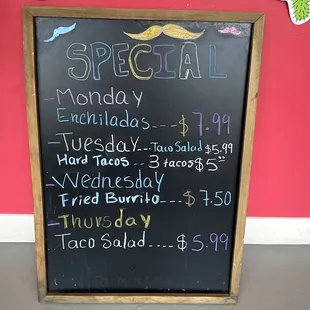 SPECIAL
-Monday
Enchiladas---$7.99
-Tuesday--Taco Salad $5.99
Hard Tacos -- 3 tacos $5
-Wednesday
Fried Burrito---$7.50
-Thursday
Taco Salad....$5.99